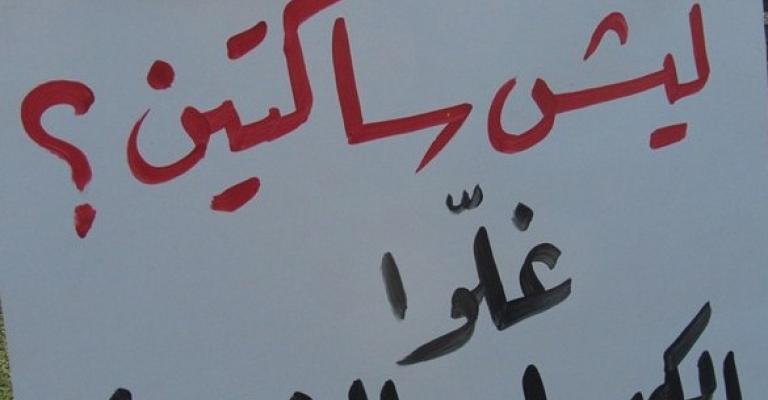 ليش ساكتين؟
غلّوا